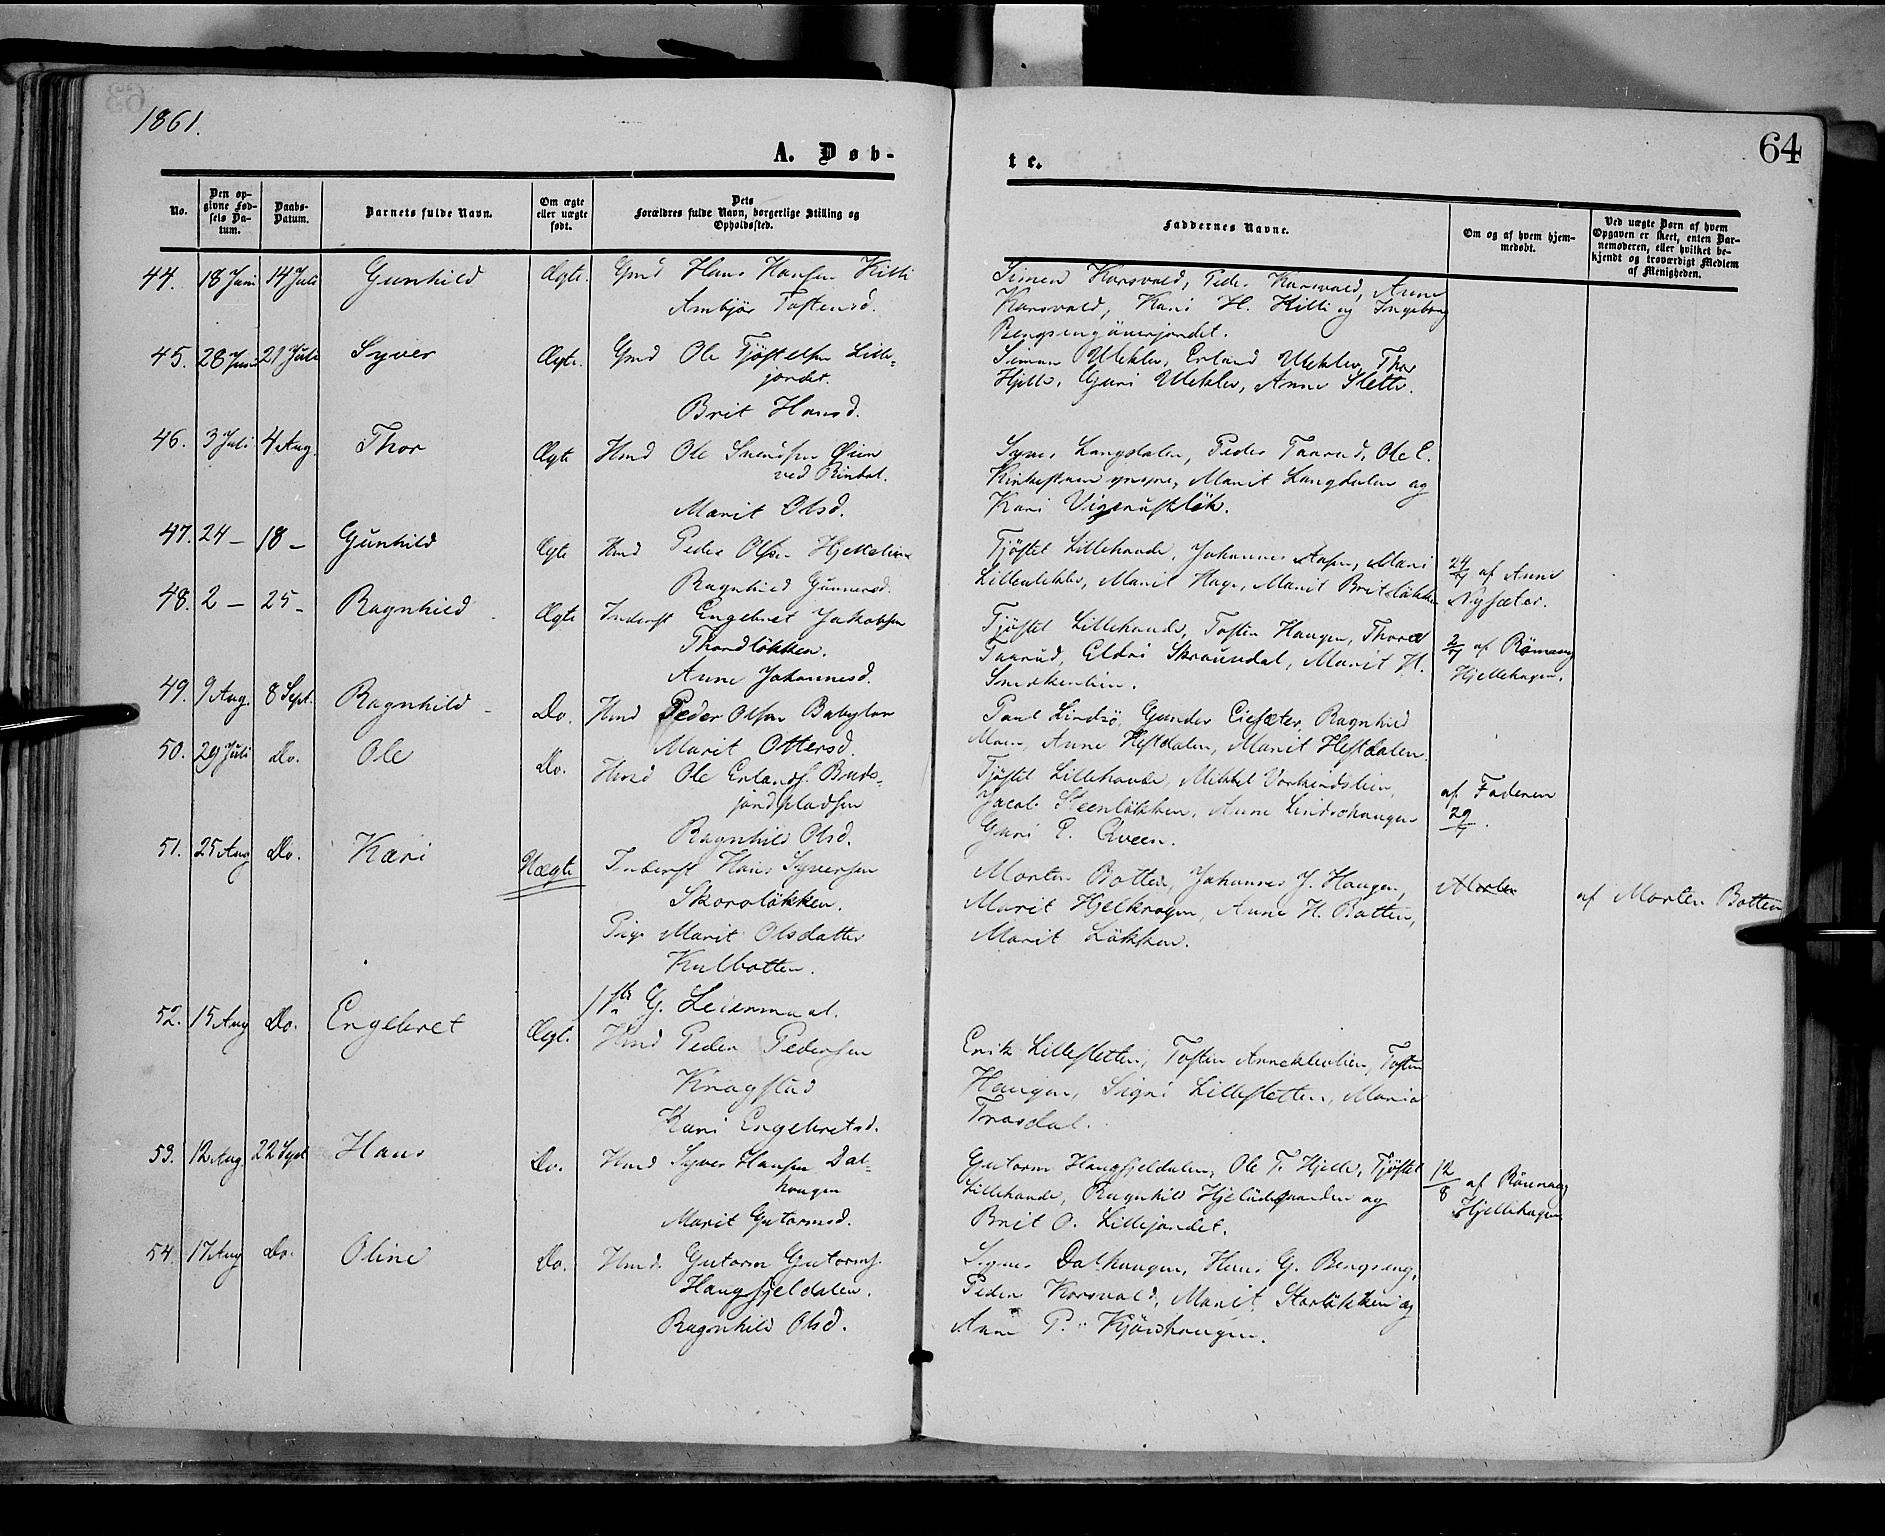 1861.
64
A. Døb-
te.
No.
Den op-
givne Fød-
sels Da-
tum.
Daabs-
Datum.
Barnets fulde Navn.
Om ægte
eller uægte
født.
Dets
Forældres fulde Navn, borgerlige Stilling og
Opholdssted.
Faddernes Navne.
Om og af hvem hjem-
medøbt.
Ved uægte Børn af hvem
Opgaven er skeet, enten Bar-
nemoderen, eller hvilket be-
kjendt og troværdigt Medlem
af Menigheden.
44. 18 Juni 14 Juli Gunhild Ægte. Gmd Hans Hansen Killi
Ambjør Tostensd.
Simen Korsvold, Peder Korsvold, Anne
Korsvold, Kari H. Killi og Ingeborg
45. 28 Juni 21 Juli Syver Ægte. Gmd Ole Tjøstelsen Lille-
jordet.
Brit Hansd.
Simen Ulekler, Erland Ulekler, Thor
Hjelle, Guri Ulekler, Anne Slette.
46. 3 Juli 4 Aug. Thor Ægte Hmd Ole Svendsen Øien
ved Rindal.
Marit Olsd.
Syver Langdalen, Peder Taarud, Ole E.
Marit Langdalen og
Kari
47. 24 – 18 – Gunhild Ægte Hmd Peder Olsen
Ragnhild Gunnersd.
Tjøstel Lillehaade, Johannes Aasen, Mari
Marit Hage, Marit Britsløkken
24/7 af Anne
Nysæter.
48. 2 – 25 – Ragnhild Ægte Inderst Engebret Jakobsen
Thordløkken.
Anne Johannesd.
Tjøstel Lillehaade, Tosten Haugen, Thord
Taarud, Eldri Skrøundal, Marit H.
2/7 af Rønnaug
Hjellehagen.
49. 9 Aug. 8 Sept. Ragnhild – Do. Hmd Peder Olsen Babylon
Marit Ottersd.
Paul Lindsø, Gunder Ciesæter, Ragnhild
Moen, Anne Hestdalen, Marit Hestdalen.
50. 29 Juli Do. Ole Do. Hmd Ole Erlands. Buds-
jordpladsen
Ragnhild Olsd.
Tjøstel Lillehaade, Mikkel
Jacob Steenløkken, Anne Lindsøhaugen
Guri E. Qveen.
af Faderen
29/7.
51. 25 Aug Do. Kari Uægte Inderst Hans Syversen
Skoroløkken.
Pige Marit Olsdatter
Kulbotten.
1ste G. Leiermaal.
Morten Botten, Johannes J. Haugen,
Marit Hjelkragen, Anne H. Botten,
Marit Løkken.
Morten
af Morten Botten
52. 15 Aug Do. Engebret Ægt. Hmd Peder Pedersen
Knagstad
Kari Engebretsd.
Erik Lillesletten, Tosten Anneklevlien, Tosten
Haugen, Sigri Lillesletten, Maria
Trosdal.
53. 12 Aug. 22 Sept Hans Do. Hmd Syver Hansen Dal-
haugen
Marit Gutormsd.
Gutorm Haugfjeldalen, Ole T. Hjelle, Tjøstel
Lillehaade, Ragnhild og
Brit O. Lillejordet.
12/8 af Rønnaug
Hjellehagen
54. 17 Aug Do. Oline Do. Hmd. Gutorm Gutorms.
Haugfjeldalen.
Ragnhild Olsd.
Syver Dalhaugen, Hans G. Bengseng,
Peder Korsvold, Marit Storløkken og
Anne P. Kjørshaugen.